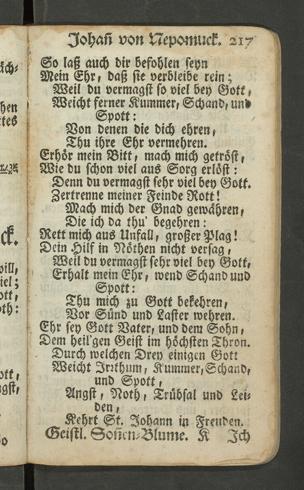 Johañ von Nepomuck. 217
So laß auch dir befohlen seyn
Mein Ehr, daß sie verbleibe rein;
Weil du vermagst so viel bey Gott,
Weicht ferner Kummer, Schand, und
Spott:
Von denen die dich ehren,
Thu ihre Ehr vermehren.
Erhör mein Bitt, mach mich getröst,
Wie du schon viel aus Sorg erlöst:
Denn du vermagst sehr viel bey Gott.
Zertrenne meiner Feinde Rott!
Mach mich der Gnad gewähren,
Die ich da thu' begehren:
Rett mich aus Unfall, großer Plag!
Dein Hilf in Nöthen nicht versag,
Weil du vermagst sehr viel bey Gott,
Erhalt mein Ehr, wend Schand und
Spott:
Thu mich zu Gott bekehren,
Vor Sünd und Laster wehren.
Ehr sey Gott Vater, und dem Sohn,
Dem heil'gen Geist im höchsten Thron.
Durch welchen Drey einigen Gott
Weicht Irrthum, Kummer, Schand,
und Spott,
Angst, Noth, Trübsal und Lei-
den,
Kehrt St. Johann in Freuden.
Geistl. Soñen-Blume. K Ich